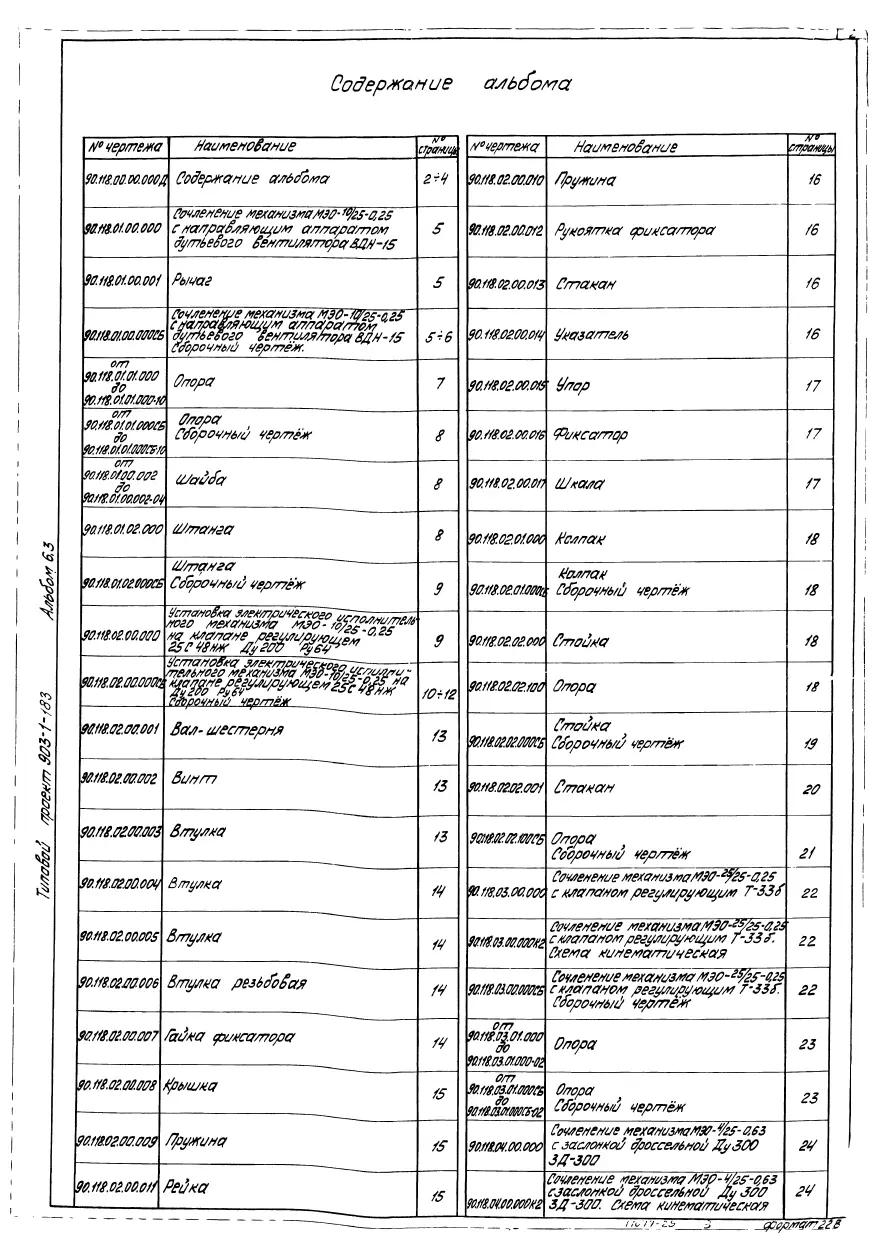 Содержание альбома
№ чертежа Наименование № страницы
90.118.00.00.000Д Содержание альбома 2÷4
90.118.01.00.000 Сочленение механизма МЭО-10/25-0,25
с направляющим аппаратом
дутьевого вентилятора ВДН-15 5
90.118.01.00.001 Рычаг 5
90.118.01.00.000СБ Сочленение механизма МЭО-10/25-0,25
с направляющим аппаратом
дутьевого вентилятора ВДН-15
Сборочный чертёж. 5÷6
от
90.118.01.01.000
до
90.118.01.01.000-10 Опора 7
от
90.118.01.01.000СБ
до
90.118.01.01.000СБ-10 Опора
Сборочный чертёж 8
от
90.118.01.00.002
до
90.118.01.00.002-04 Шайба 8
90.118.01.02.000 Штанга 8
90.118.01.02.000СБ Штанга
Сборочный чертёж 9
90.118.02.00.000 Установка электрического исполнитель-
ного механизма МЭО-10/25-0,25
на клапане регулирующем
25С48нж Ду200 Ру64 9
90.118.02.00.000СБ Установка электрического исполни-
тельного механизма МЭО-10/25-0,25 на
клапане регулирующем 25С48нж
Ду200 Ру64
Сборочный чертёж 10÷12
90.118.02.00.001 Вал-шестерня 13
90.118.02.00.002 Винт 13
90.118.02.00.003 Втулка 13
90.118.02.00.004 Втулка 14
90.118.02.00.005 Втулка 14
90.118.02.00.006 Втулка резьбовая 14
90.118.02.00.007 Гайка фиксатора 14
90.118.02.00.008 Крышка 15
90.118.02.00.009 Пружина 15
90.118.02.00.011 Рейка 15
№ чертежа Наименование № страницы
90.118.02.00.010 Пружина 16
90.118.02.00.012 Рукоятка фиксатора 16
90.118.02.00.013 Стакан 16
90.118.02.00.014 Указатель 16
90.118.02.00.015 Упор 17
90.118.02.00.016 Фиксатор 17
90.118.02.00.017 Шкала 17
90.118.02.01.000 Колпак 18
90.118.02.01.000СБ Колпак
Сборочный чертёж 18
90.118.02.02.000 Стойка 18
90.118.02.02.100 Опора 18
90.118.02.02.000СБ Стойка
Сборочный чертёж 19
90.118.02.02.001 Стакан 20
90.118.02.02.100СБ Опора
Сборочный чертёж 21
90.118.03.00.000 Сочленение механизма МЭО-25/25-0,25
с клапаном регулирующим Т-33б 22
90.118.03.00.000К2 Сочленение механизма МЭО-25/25-0,25
с клапаном регулирующим Т-33б.
Схема кинематическая 22
90.118.03.00.000СБ Сочленение механизма МЭО-25/25-0,25
с клапаном регулирующим Т-33б.
Сборочный чертёж 22
от
90.118.03.01.000
до
90.118.03.01.000-02 Опора 23
от
90.118.03.01.000СБ
до
90.118.03.01.000СБ-02 Опора
Сборочный чертёж 23
90.118.04.00.000 Сочленение механизма МЭО-4/25-0,63
с заслонкой дроссельной Ду300
ЗД-300 24
90.118.04.00.000К2 Сочленение механизма МЭО-4/25-0,63
с заслонкой дроссельной Ду 300
ЗД-300. Схема кинематическая 24
Типовой проект 903-1-183 Альбом 6.3
3 формат 22В